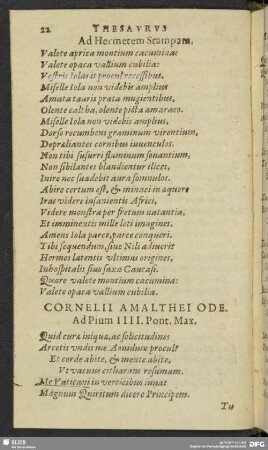 22 THESAVRVS
Ad Hermetem Stampam.
Valete aprica montium cacumina:
Valete opaca vallium cubilia:
Vestris Iolas it procul recessibus.
Miselle Iola non videbis amplius
Amata tauris prata mugientibus,
Olente caltha, olente picta amaraco.
Miselle Iola non videbis amplius,
Dorso recumbens graminum virentium,
Depræliantes cornibus iuuenculos.
Non tibi susurri flaminum sonantium,
Non sibilantes blandientur ilices,
Inire nec suadebit aura somnulos.
Abire certum est, & minaci in æquore
Iras videre insanientis Africi,
Videre monstra per fretum natantia,
Et imminentis mille leti imagines.
Amens Iola parce, parce conqueri.
Tibi sequendum, siue Nili adiuerit
Hermes latentis vltimas origines,
Inhospitalis siue saxa Caucasi.
Quare valete montium cacumina:
Valete opaca vallium cubilia.
CORNELII AMALTHEI ODE.
Ad Pium IIII. Pont. Max.
Quid curæ iniquæ, ac solicitudines
Arcetis vndis me Aonidum procul?
Et corde abite, & mente abite,
Vt vacuus citharam resumam.
Me Vaticani in verticibus iuuat
Magnum Quiritum dicere Principem.
SLUB